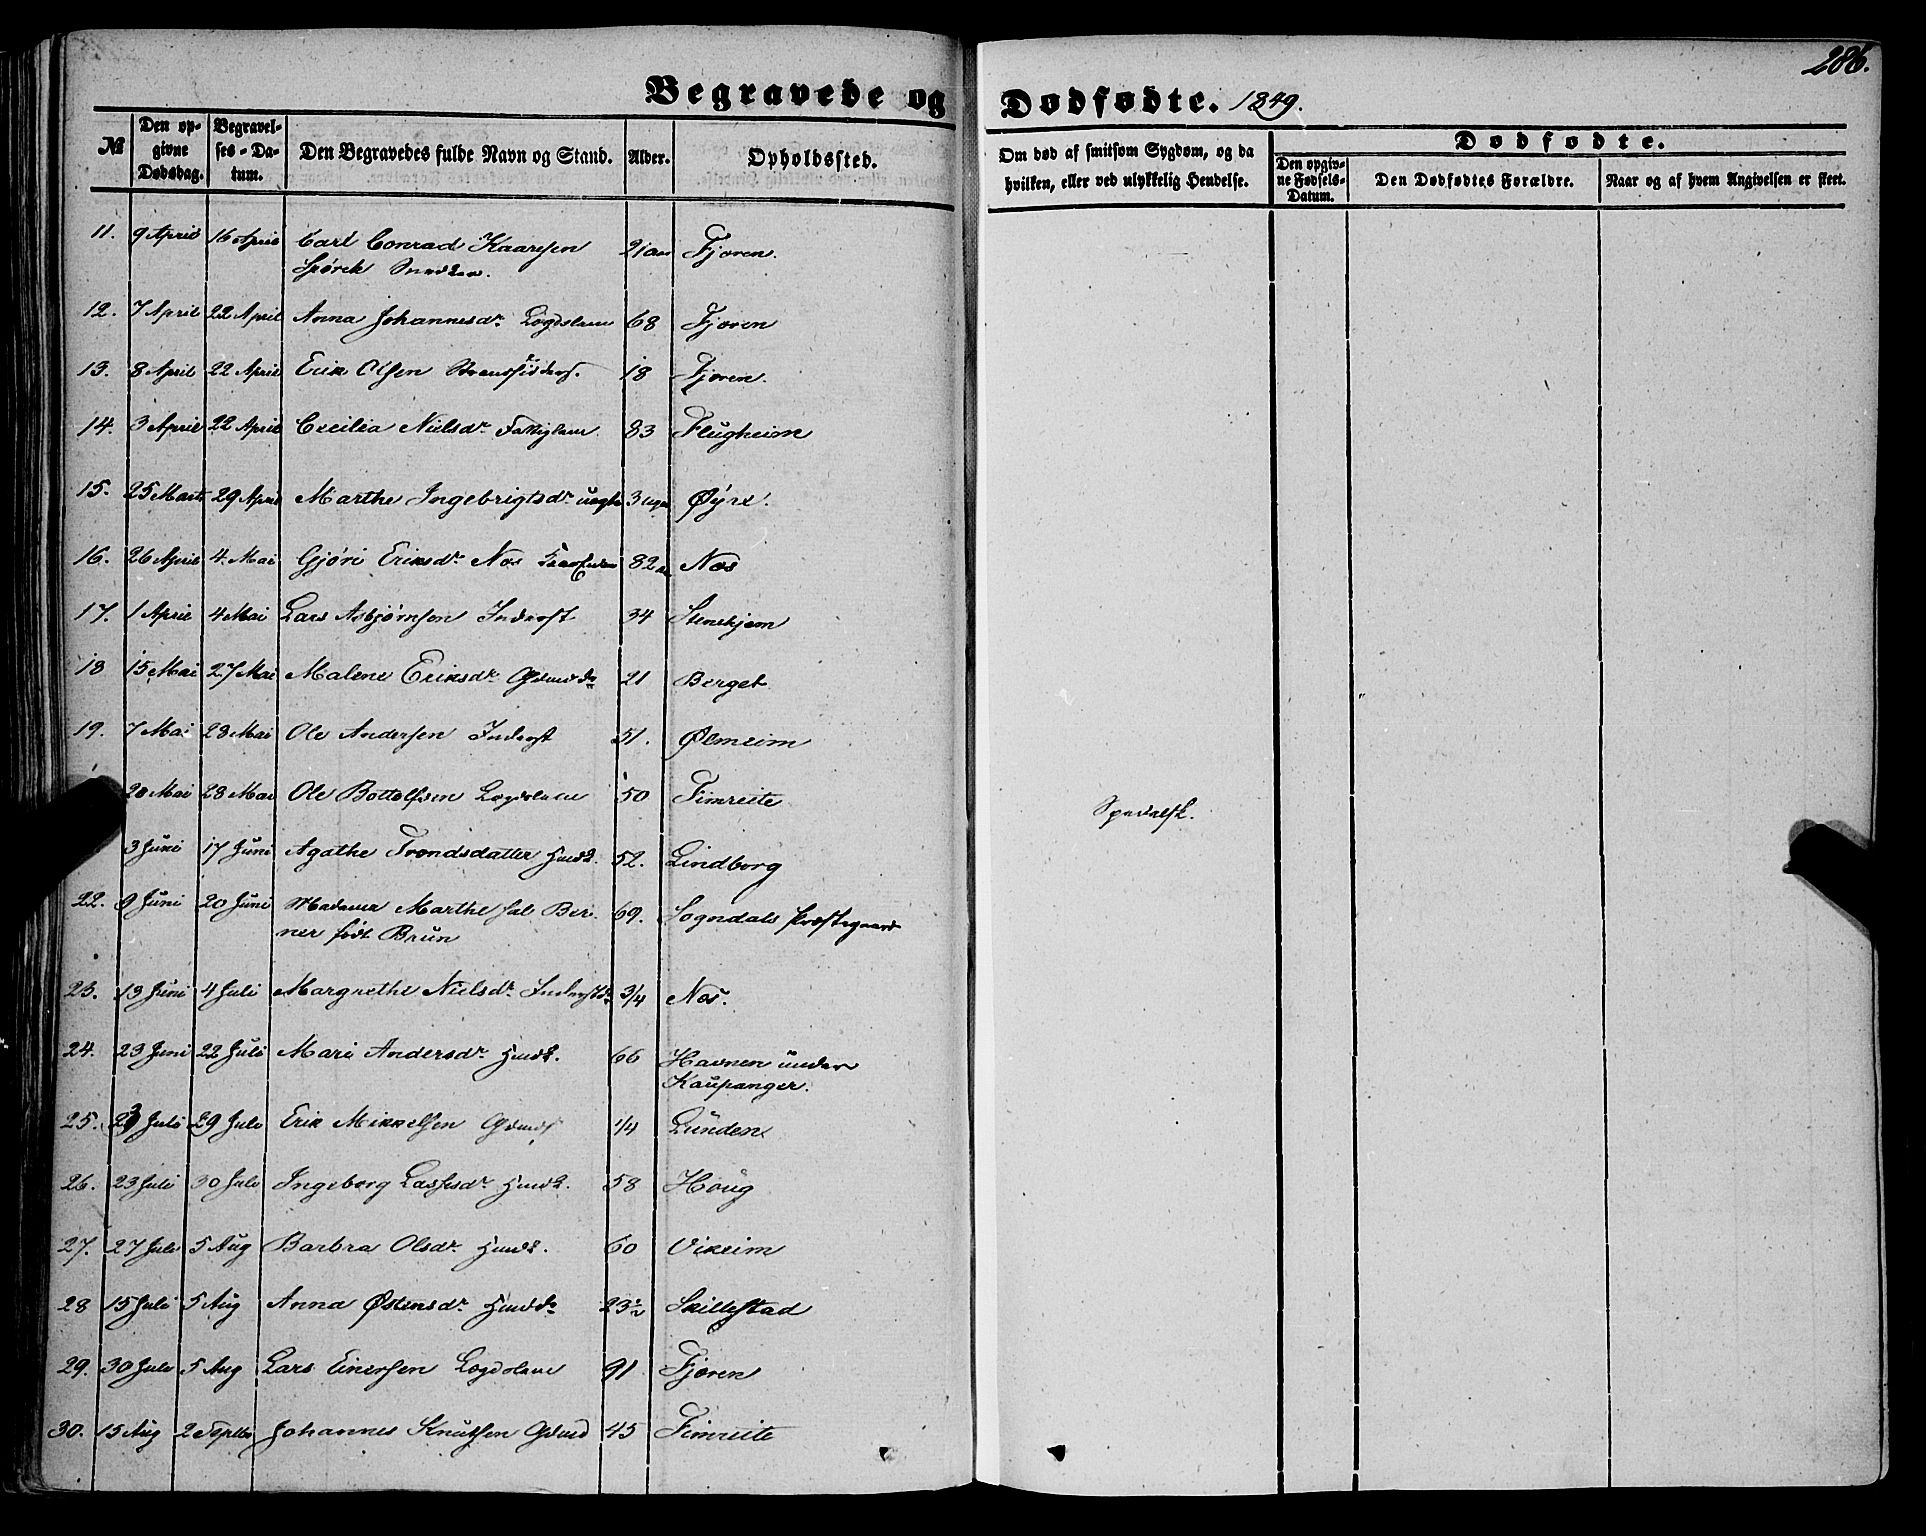 286.
Begravede og Dødfødte. 1849.
№ Den opgivne Dødsdag. Begravelses-Datum. Den Begravedes fulde Navn og Stand. Alder. Opholdssted. Om død af smitsom Sygdom, og da hvilken, eller ved ulykkelig Hendelse. Dødfødte. Den opgivne Fødsels-Datum. Den Dødfødtes Forældre. Naar og af hvem Angivelsen er skeet.
11. 9 April 16 April Carl Conrad Kaarssen 21 aar Fjøren.
Snedker.
12. 7 April 22 April Anna Johannesdr Lægdslem 68 Fjæren
13. 8 April 22 April Erik Olsen 18 Fjæren.
14. 3 April 22 April Cecilia Nielsdr Fattiglem 83 Flugheim
15. 25 Marts 29 April Marthe Ingebrigtsdr uægte 3 uger Øyre.
16. 26 April 4. Mai Gjøri Eriksdr Nos 82 aar Nos
17. 1 April 4 Mai Lars Asbjørnsen Inderst 34 Stenehjem
18 15 Mai 27 Mai Malene Eriksdr 21 Berget
19. 7 Mai 28 Mai Ole Andersen Inderst 51. Ølmeim
20 Mai 28 Mai Ole Bottolfsen Lægdslem 50 Fimreite Spedalsk.
3 Juni 17 Juni Agathe Trondsdatter Husk. 52. Lindborg
22. 9 Juni 20 Juni Madame Marthe sal Ber- 69. Sogndals Præstegaard
ner født Brun
23. 13 Juni 4 Juli Margrethe Nielsdr 3/4 Nos.
24. 23 Juni 22 Juli Mari Andersdr Husk. 66 Havnen under
Kaupanger.
25. 23 Juli 29 Juli Erik Mikkelsen Gdmds 1/4 Lunden
26. 23 Juli 30 Juli Ingeborg Lassesdr Husk. 58 Houg
27. 27 Juli 5 Aug Barbra Olsdr Husk. 60 Vikeim
28 15 Juli 5 Aug Anna Østensdr 23½ Skillestad
29. 30 Juli 5 Aug Lars Einersen Lægdslem 91 Fjæren
30. 15 Aug 2 Septbr Johannes Knutsen Gdmd 45 Fimreite